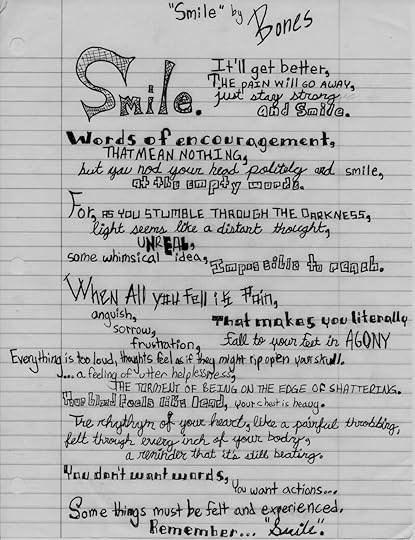 "Smile" by Bones
Smile.
It'll get better,
THE PAIN WILL GO AWAY,
just stay strong
and Smile.
Words of encouragement,
THAT MEAN NOTHING,
but you nod your head politely and smile,
at the empty words.
For, AS YOU STUMBLE THROUGH THE DARKNESS,
light seems like a distant thought,
UNREAL,
some whimsical idea, Impossible to reach.
When All you Fell is Pain,
anguish,
sorrow,
frustration,
That makes you literally
fall to your feet in AGONY
Everything is too loud, thoughts feel as if they might rip open your skull.
... a feeling of utter helplessness,
THE TORMENT OF BEING ON THE EDGE OF SHATTERING.
Your blood feels like lead, your chest is heavy.
The rhythym of your heart, like a painful throbbing,
felt through every inch of your body,
a reminder that it's still beating.
You don't want words,
You want actions...
Some things must be felt and experienced.
Remember... "Smile".